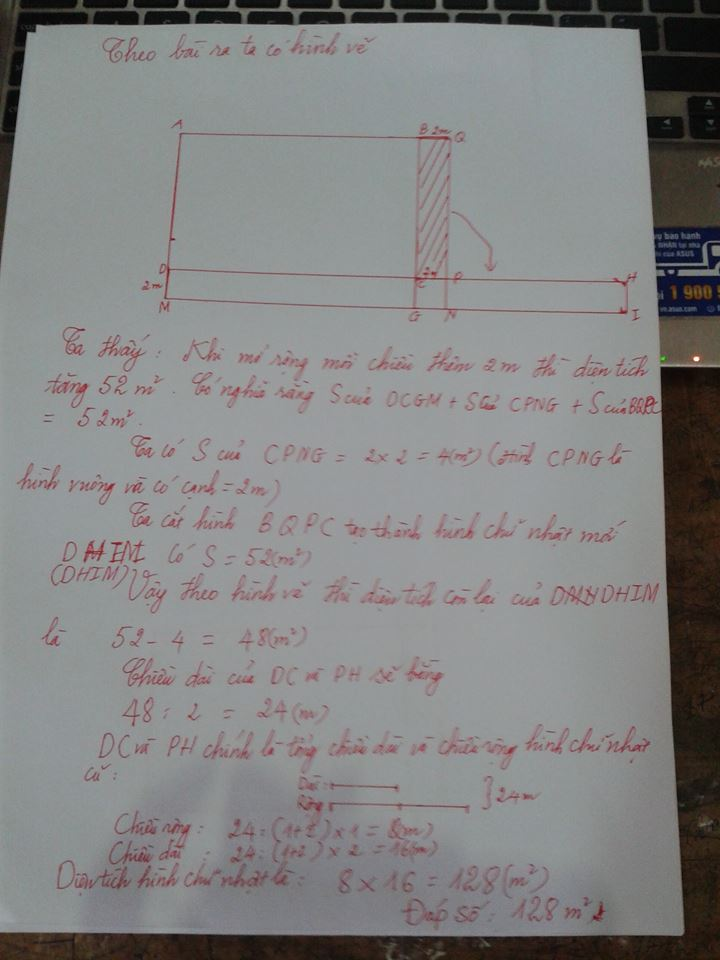 Theo bài ra ta có hình vẽ
A B 2m Q
D C 2m P H
2m
M G N I
vụ bao hanh
NHÂN tại nha
hỉ của ASUS
1 900 5
vn.asus.com
Ta thấy: Khi mở rộng mỗi chiều thêm 2m thì diện tích
tăng 52 m². Có nghĩa rằng S của DCGM + S của CPNG + S của BQPC
= 52m².
Ta có S của CPNG = 2 x 2 = 4(m²) (Hình CPNG là
hình vuông và có cạnh = 2m)
Ta cắt hình BQPC tạo thành hình chữ nhật mới
có S = 52(m²)
(DHIM) Vậy theo hình vẽ thì diện tích còn lại của DHIM
là 52 - 4 = 48(m²)
Chiều dài của DC và PH sẽ bằng
48 : 2 = 24(m)
DC và PH chính là tổng chiều dài và chiều rộng hình chữ nhật
cũ:
Dài:
Rộng 24m
Chiều rộng: 24:(1+2) x 1 = 8(m)
Chiều dài : 24:(1+2) x 2 = 16(m)
Diện tích hình chữ nhật là: 8 x 16 = 128(m²)
Đáp số: 128 m²